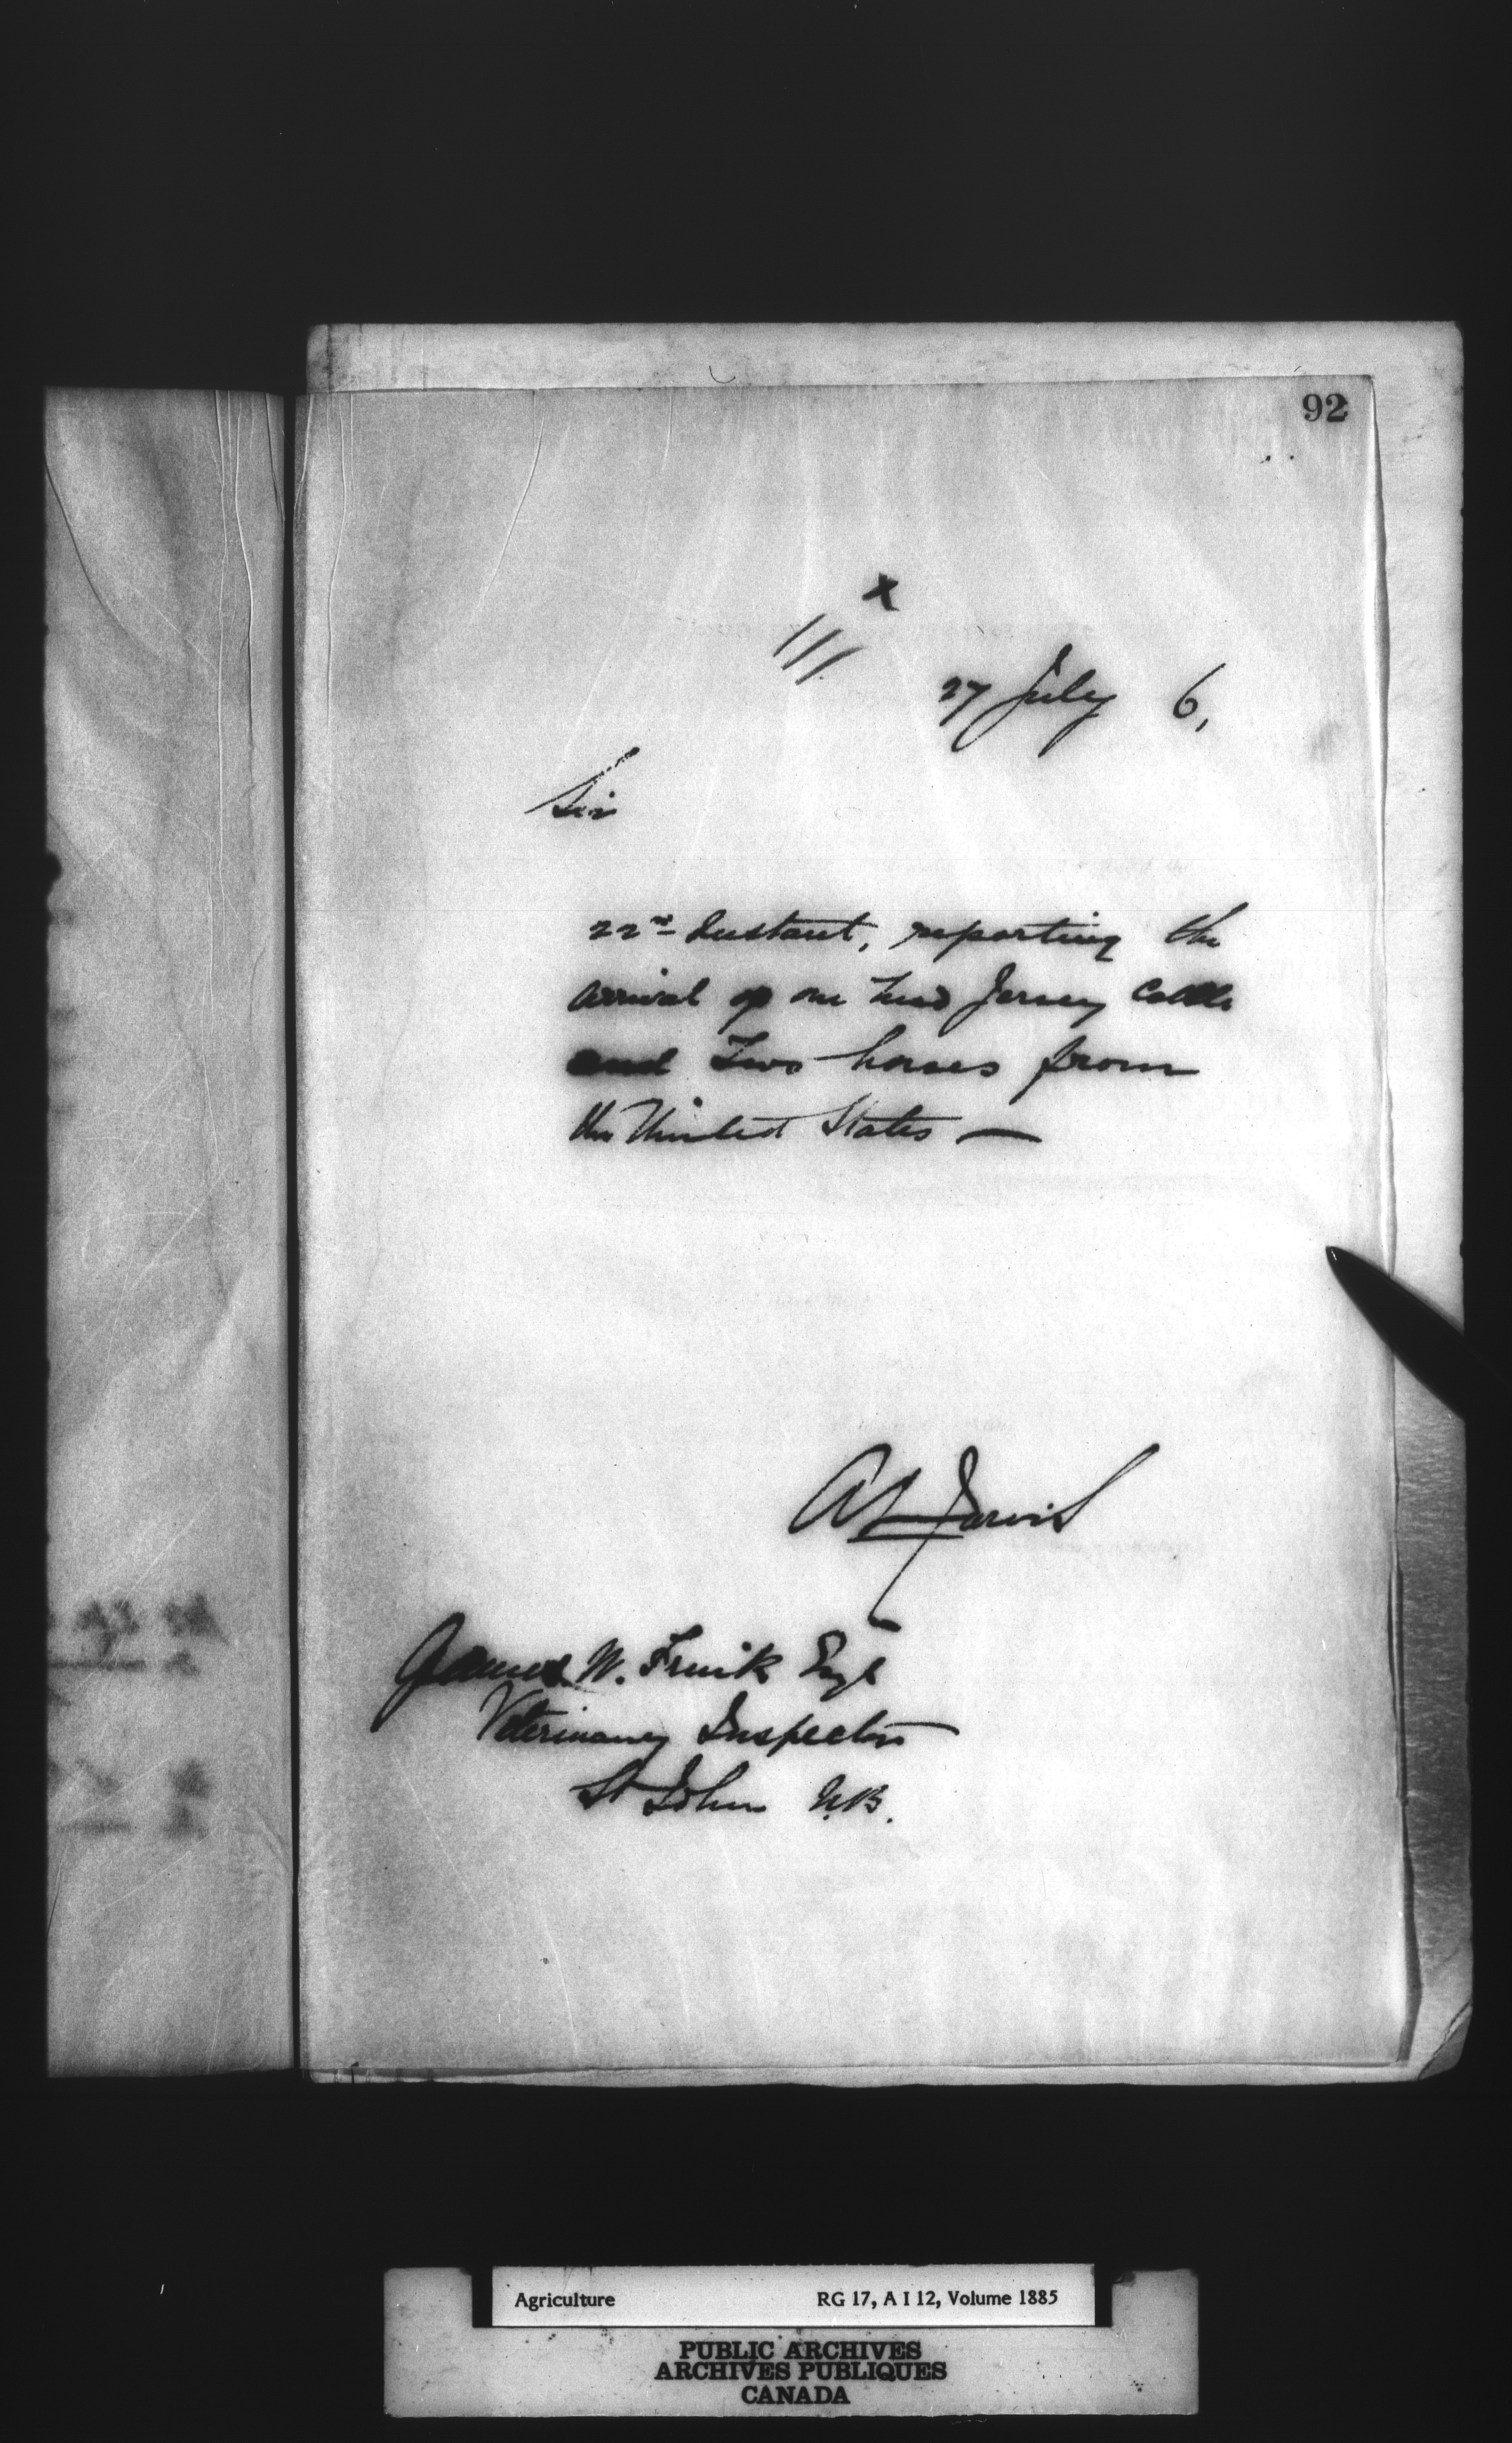 92
x
///
27 July 6,
Sir
22nd Instant, reporting the
arrival of one head Jersey Cattle
and Two horses from
the United States —
A L Jarvis
James W. Frink Esqr
Veterinary Inspector
St John N.B.
Agriculture RG 17, A I 12, Volume 1885
PUBLIC ARCHIVES
ARCHIVES PUBLIQUES
CANADA